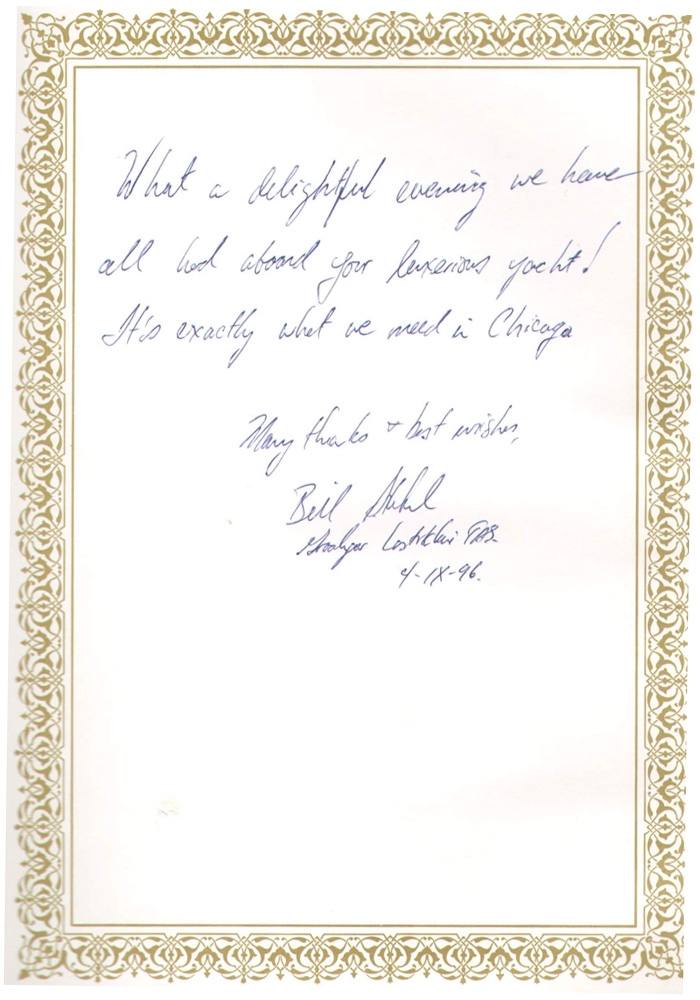 What a delightful evening we have
all had aboard your luxerious yacht!
It's exactly what we need in Chicago
Many thanks + best wishes,
Bill
4-IX-96.